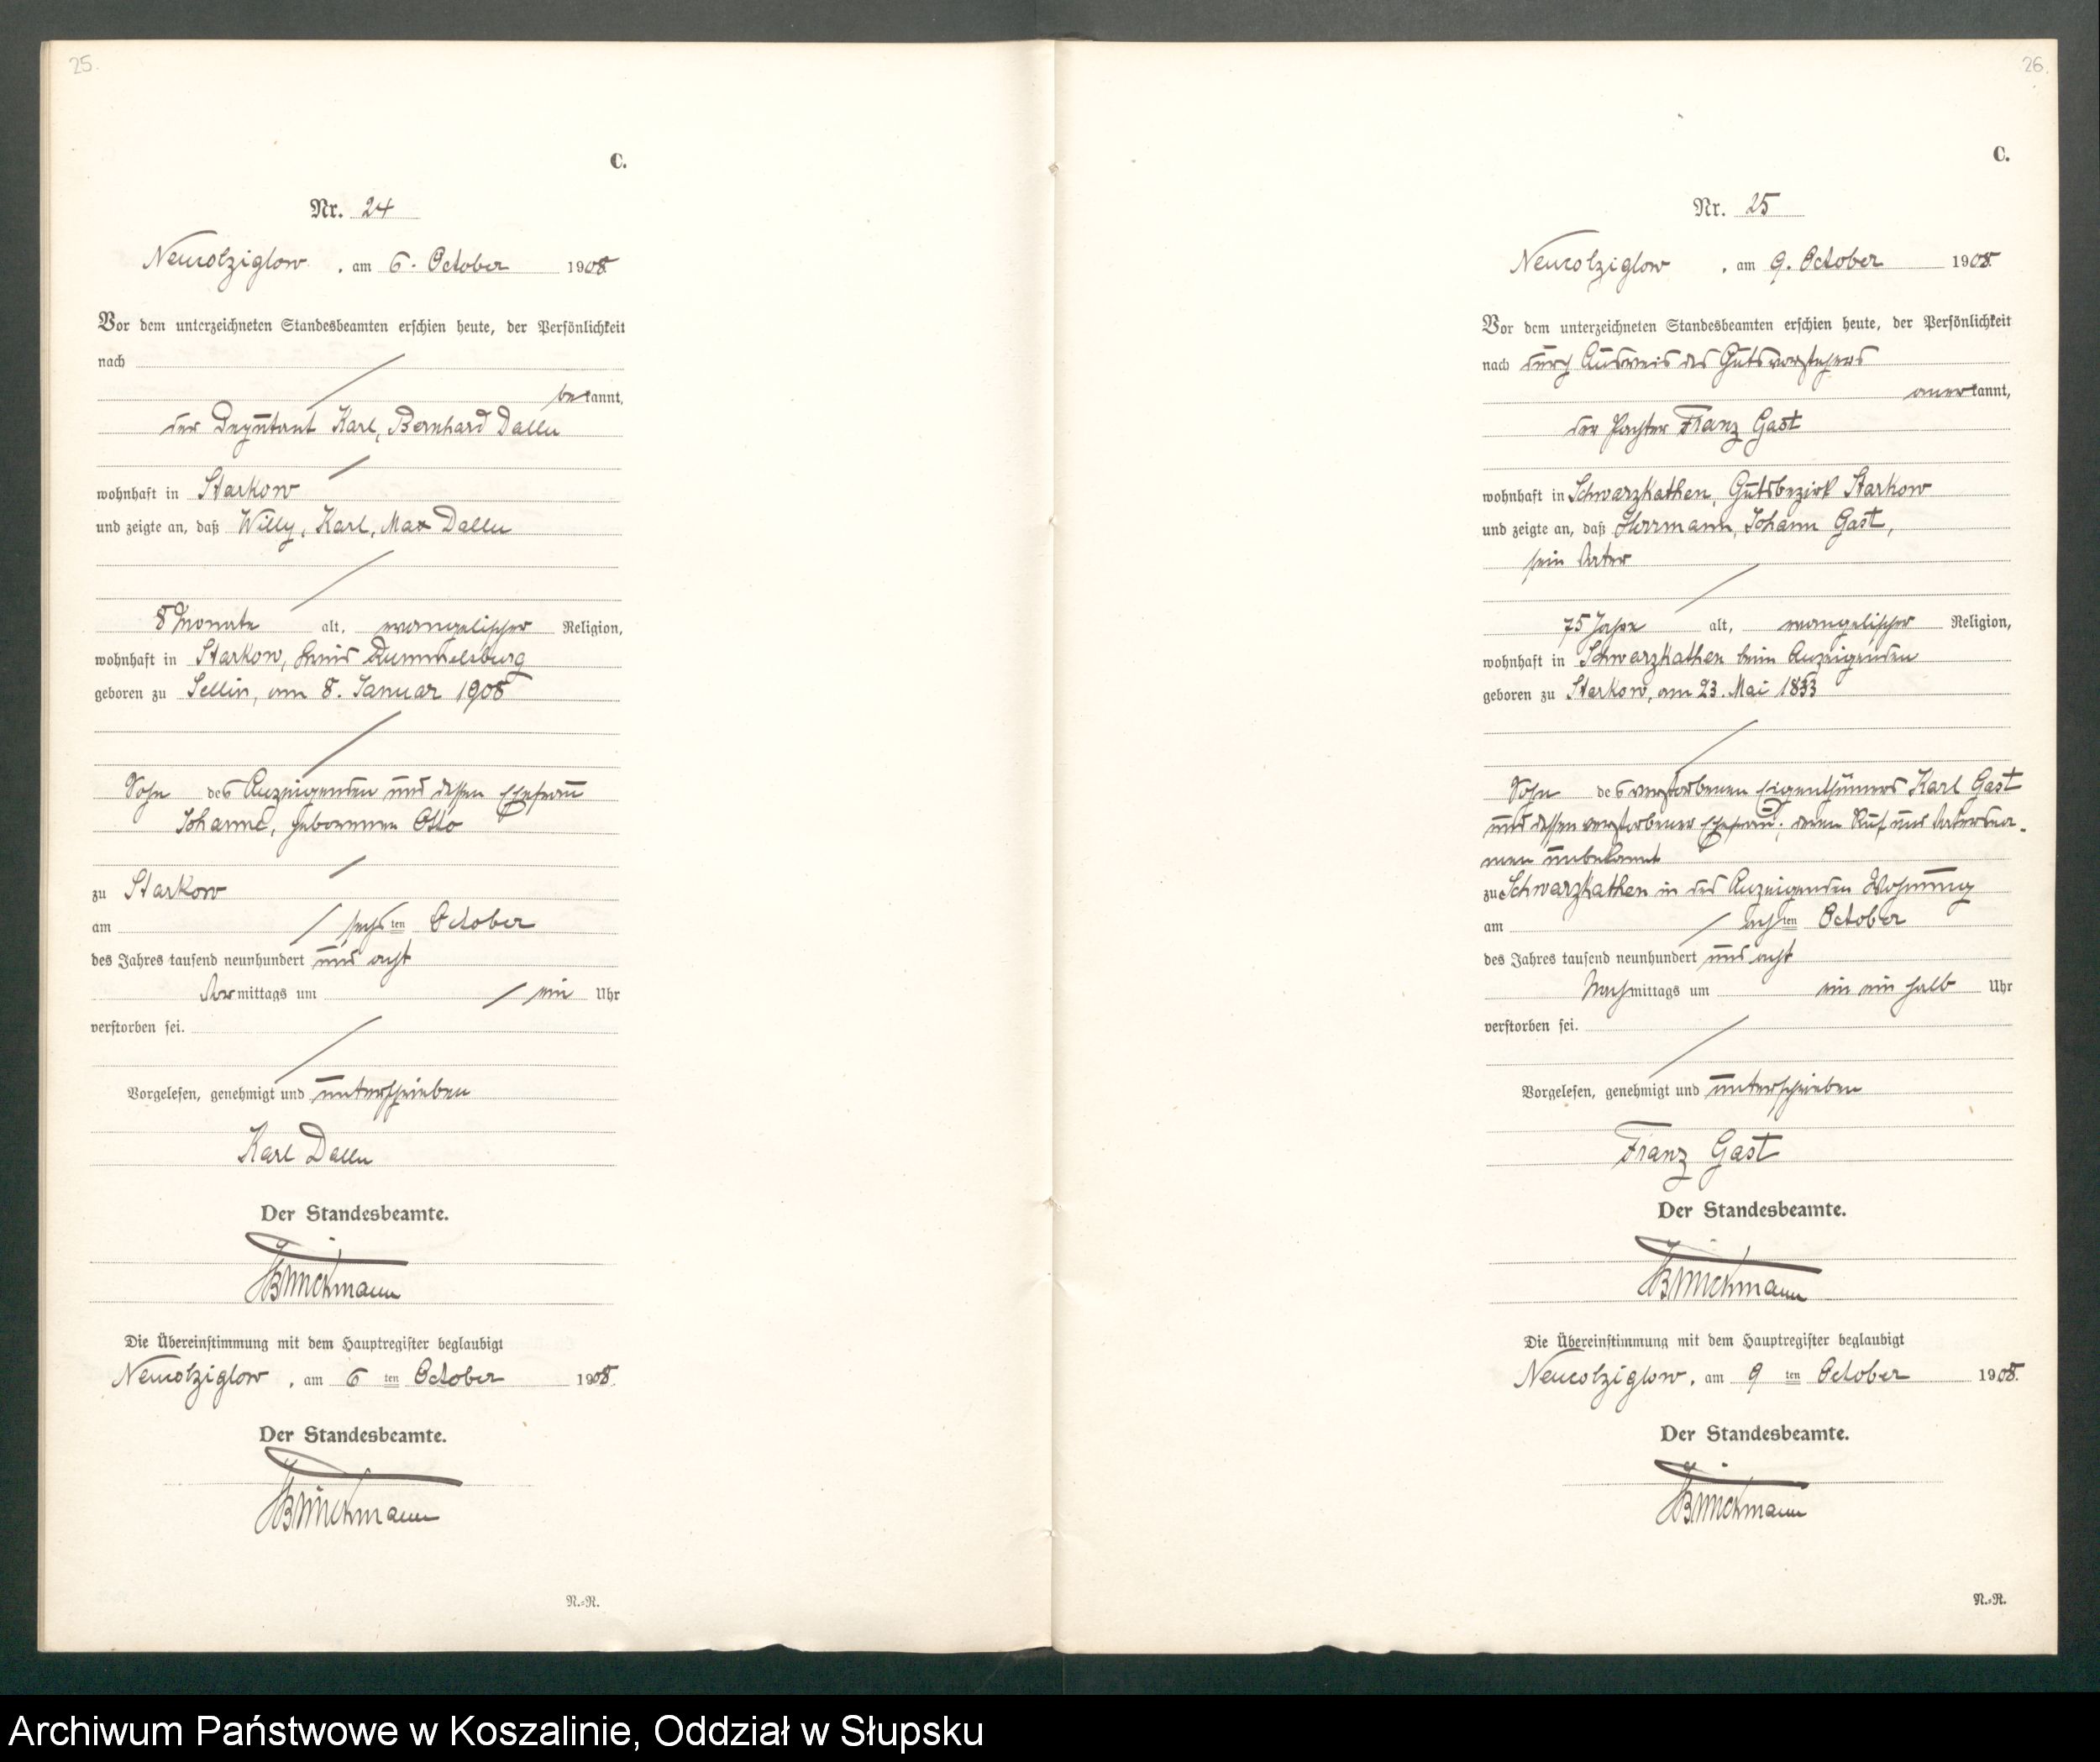 25.
C.
Nr. 24
Neukolziglow, am 6. October 1908
Vor dem unterzeichneten Standesbeamten erschien heute, der Persönlichkeit
nach
bekannt,
der Deputant Karl, Bernhard
wohnhaft in Starkow
und zeigte an, daß Willy, Karl, Max
8 Monate alt, evangelischer Religion,
wohnhaft in Starkow, Kreis Rummelsburg
geboren zu Sellin, am 8. Januar 1908
Sohn des Anzeigenden und dessen Ehefrau
Johanne, geborenen Otto
zu Starkow
am sechsten October
des Jahres tausend neunhundert und acht
Vormittags um ein Uhr
verstorben sei.
Vorgelesen, genehmigt und unterschrieben
Karl
Der Standesbeamte.
Brinckmann
Die Übereinstimmung mit dem Hauptregister beglaubigt
Neukolziglow, am 6ten October 1908.
Der Standesbeamte.
Brinckmann
N.-R.
26.
C.
Nr. 25
Neukolziglow, am 9. October 1908.
Vor dem unterzeichneten Standesbeamten erschien heute, der Persönlichkeit
nach durch Ausweis des Gutsvorstehers
anerkannt,
der Pächter Franz Gast
wohnhaft in Schwarzkathen, Gutsbezirk Starkow
und zeigte an, daß Herrmann, Johann Gast,
sein Vater
75 Jahre alt, evangelischer Religion,
wohnhaft in Schwarzkathen beim Anzeigenden
geboren zu Starkow, am 23. Mai 1833
Sohn des verstorbenen Eigenthümers Karl Gast
und dessen verstorbener Ehefrau, deren Ruf und Vatersna-
men unbekannt
zu Schwarzkathen in des Anzeigenden Wohnung
am achten October
des Jahres tausend neunhundert und acht
Nachmittags um ein ein halb Uhr
verstorben sei.
Vorgelesen, genehmigt und unterschrieben
Franz Gast
Der Standesbeamte.
Brinckmann
Die Übereinstimmung mit dem Hauptregister beglaubigt
Neukolziglow, am 9ten October 1908.
Der Standesbeamte.
Brinckmann
N.-R.
Archiwum Państwowe w Koszalinie, Oddział w Słupsku